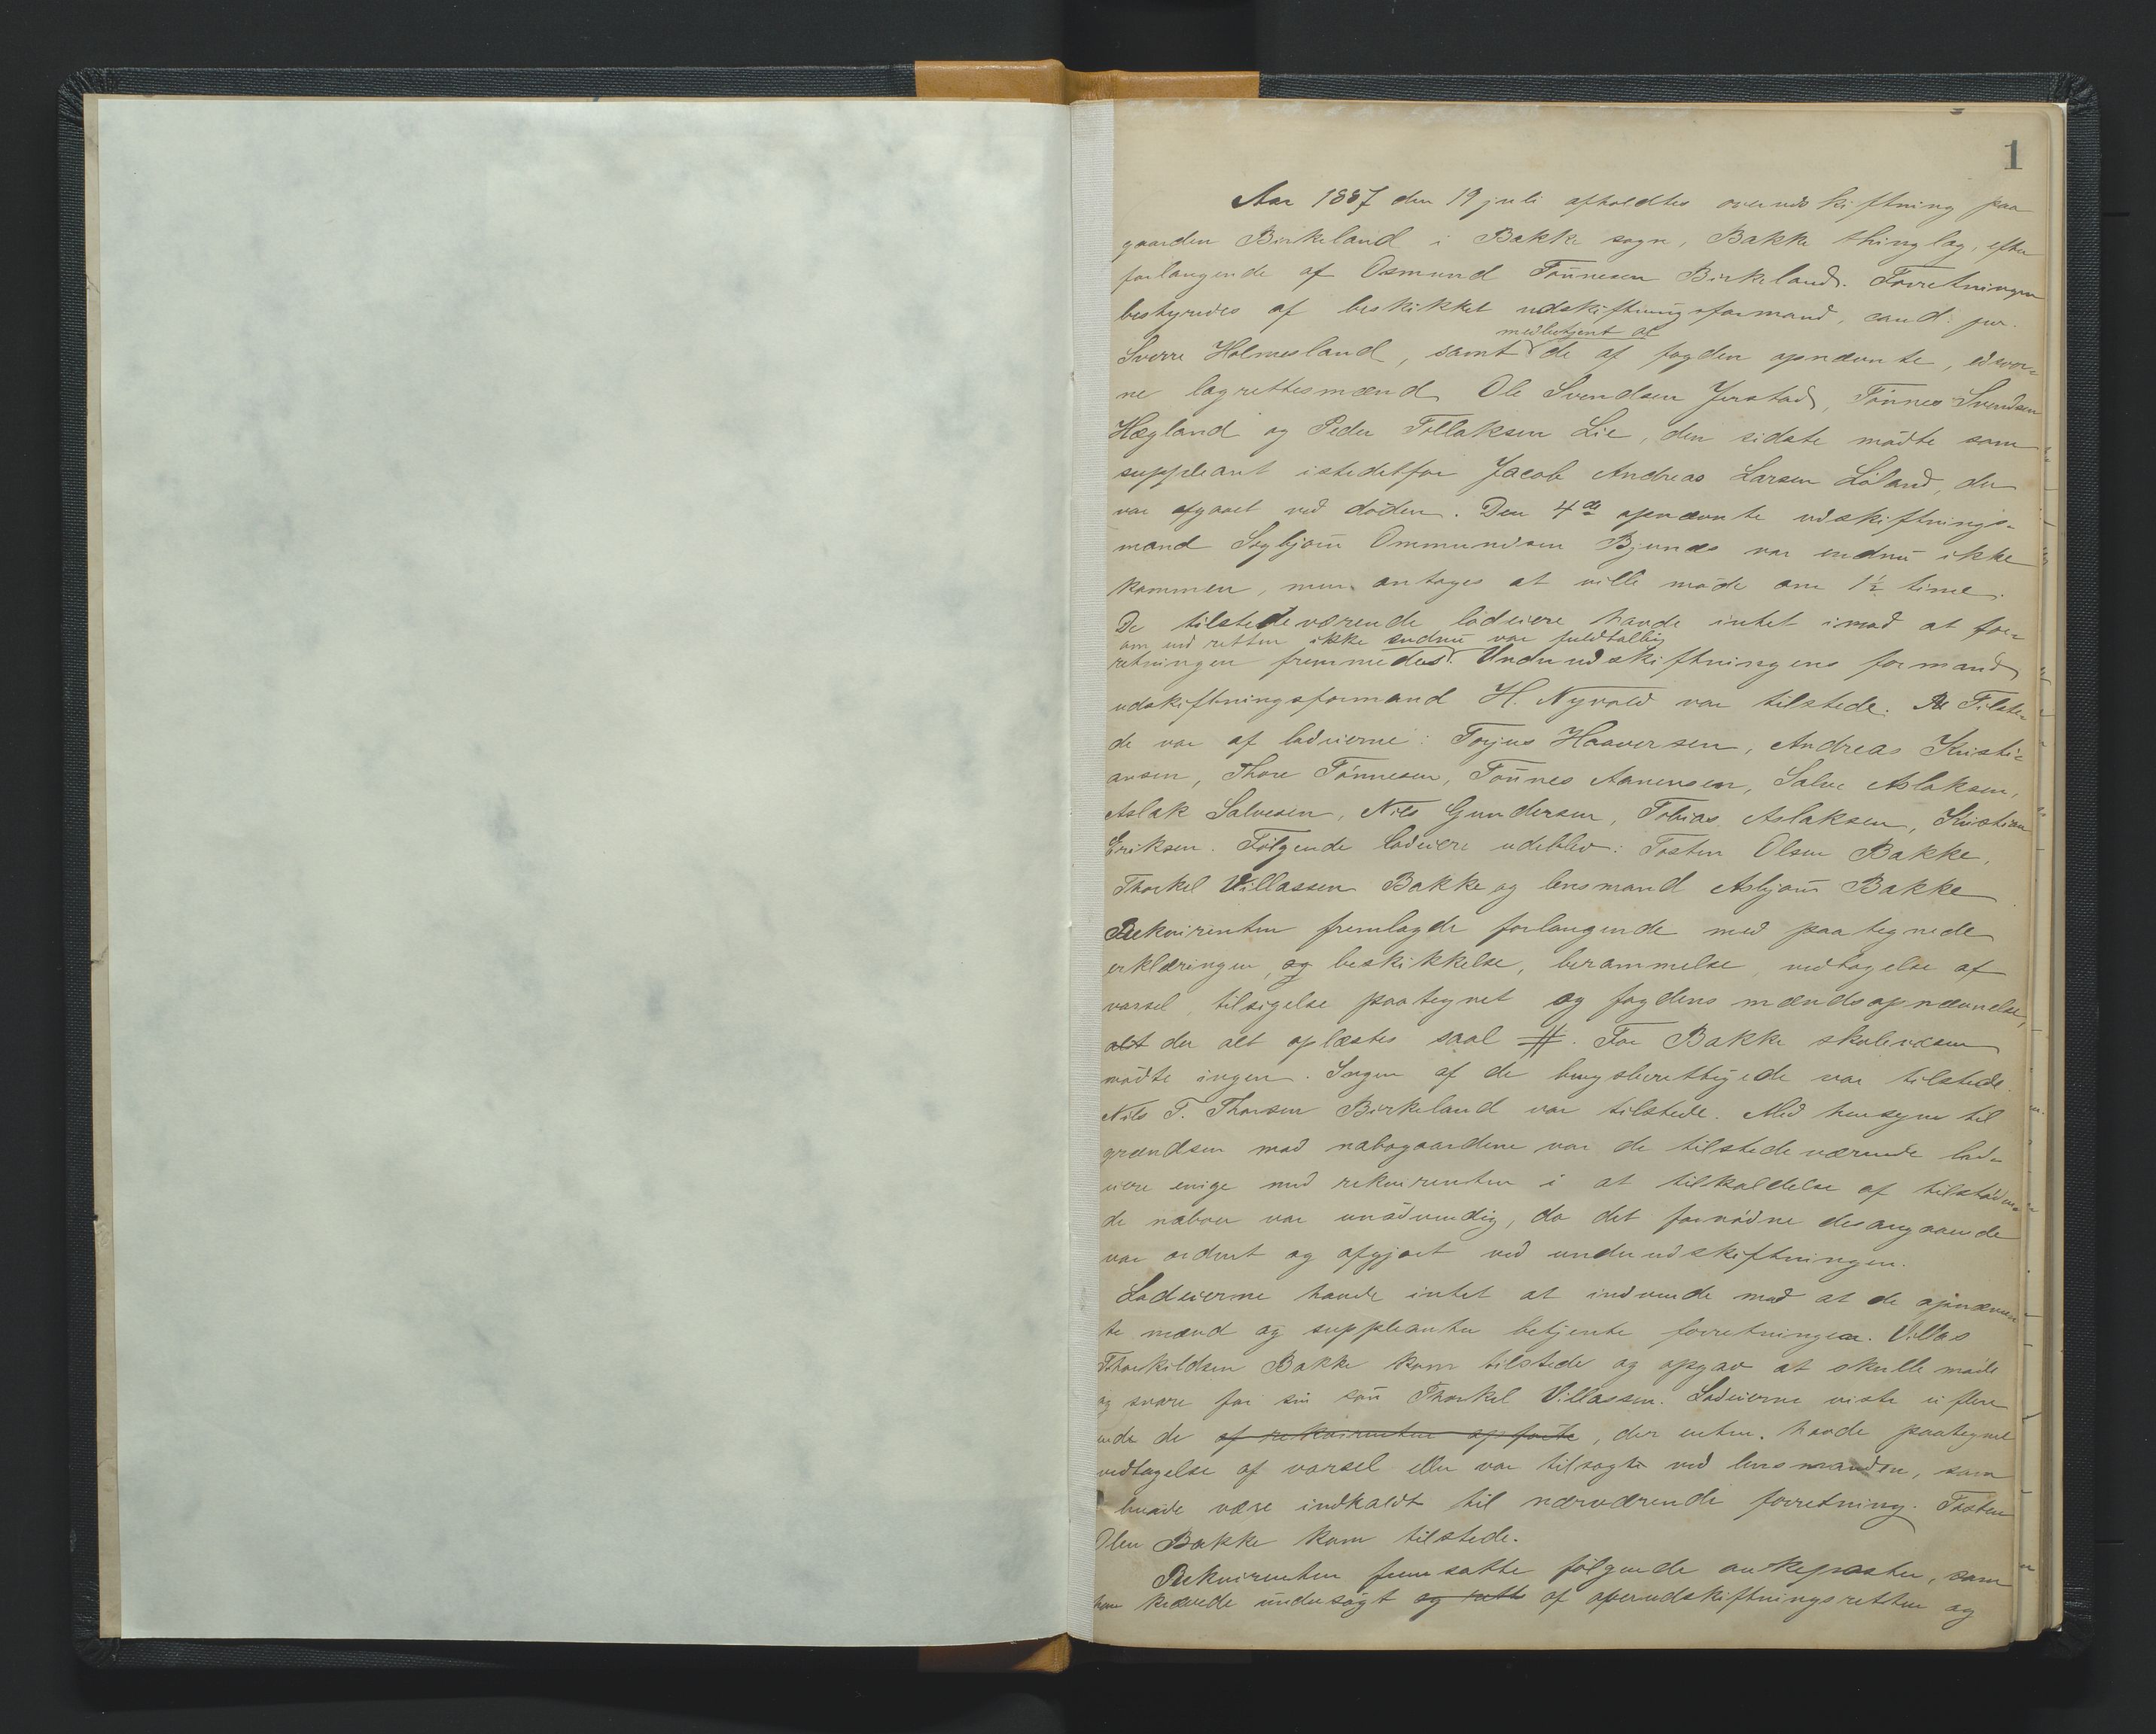 1
Aar 1887 den 19 juli afholdtes overudskiftning paa
gaarden Birkeland i Bakke sogn, Bakke thinglag, efter
forlangende af Osmund Tönnesen Birkeland. Forretningen
bestyredes af beskikket udskiftningsformand, cand. jur.
medbetjent af
Sverre Holmesland, samt de af fogden opnævnte, edsvor-
ne lagrettesmænd Ole Svendsen Jerstad, Tönnes Svendsen
Hægland og Peder Tollaksen Lie, den sidste mödte som
suppleant istedetfor Jacob Andreas Larsen Löland, der
var afgaaet ved döden. Den 4de opnævnte udskiftnings-
mand Ommundsen Bjunes var endnu ikke
kommen, men antages at ville möde om 1½ time.
De tilstedeværende lodeiere havde intet imod at for-
om end retten ikke endnu var fuldtallig
retningen fremmedes. Underudskiftningens formand
udskiftningsformand H. Nyvold var tilstede. Tilste-
de var af lodeierne: Torjus Haaversen, Andreas Kristi-
ansen, Thore Tönnesen, Tönnes Aanensen, Salve Aslaksen,
Aslak Salvesen, Nils Gundersen, Tobias Aslaksen, Kristian
Eriksen. Fölgende lodeiere udeblev: Tosten Olsen Bakke,
Thorkel Villassen Bakke og lensmand Asbjörn Bakke
Rekvirenten fremlagde forlangende med paategnede
erklæringer, og beskikkelse, berammelse, vedtagelse af
varsel, tilsigelse paategnet og fogdens mændsopnævnelse,
alt der alt oplæstes saal #. For Bakke skolevæsen
mödte ingen. Ingen af de brugsberettigede var tilstede.
Nils T. Thorsen Birkeland var tilstede. Med hensyn til
grændsen mod nabogaardene var de tilstedeværende lod-
eiere enige med rekvirenten i at tilkaldelse af tilstöden-
de naboer var unödvendig, da det fornödne desangaaende
var ordnet og afgjort ved underudskiftningen.
Lodeierne havde intet at indvende mod at de opnævn-
te mænd og suppleanter betjente forretningen. Villas
Thorkildsen Bakke kom tilstede og opgav at skulle möde
og svare for sin sön Thorkel Villassen. Lodeierne viste ei flere
end de af rekvirenten opförte, der enten havde paategnet
vedtagelse af varsel eller var tilsagte ved lensmanden, som
burde være indkaldt til nærværende forretning. Tosten
Olsen Bakke kom tilstede.
Rekvirenten fremsatte fölgende ankeposter, som
han krævede undersögt og rett af overudskiftningsretten og